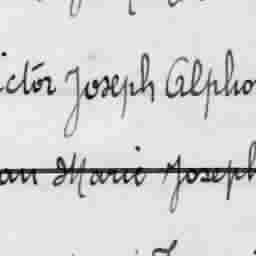 ictor Joseph Alpho
an Marie Joseph